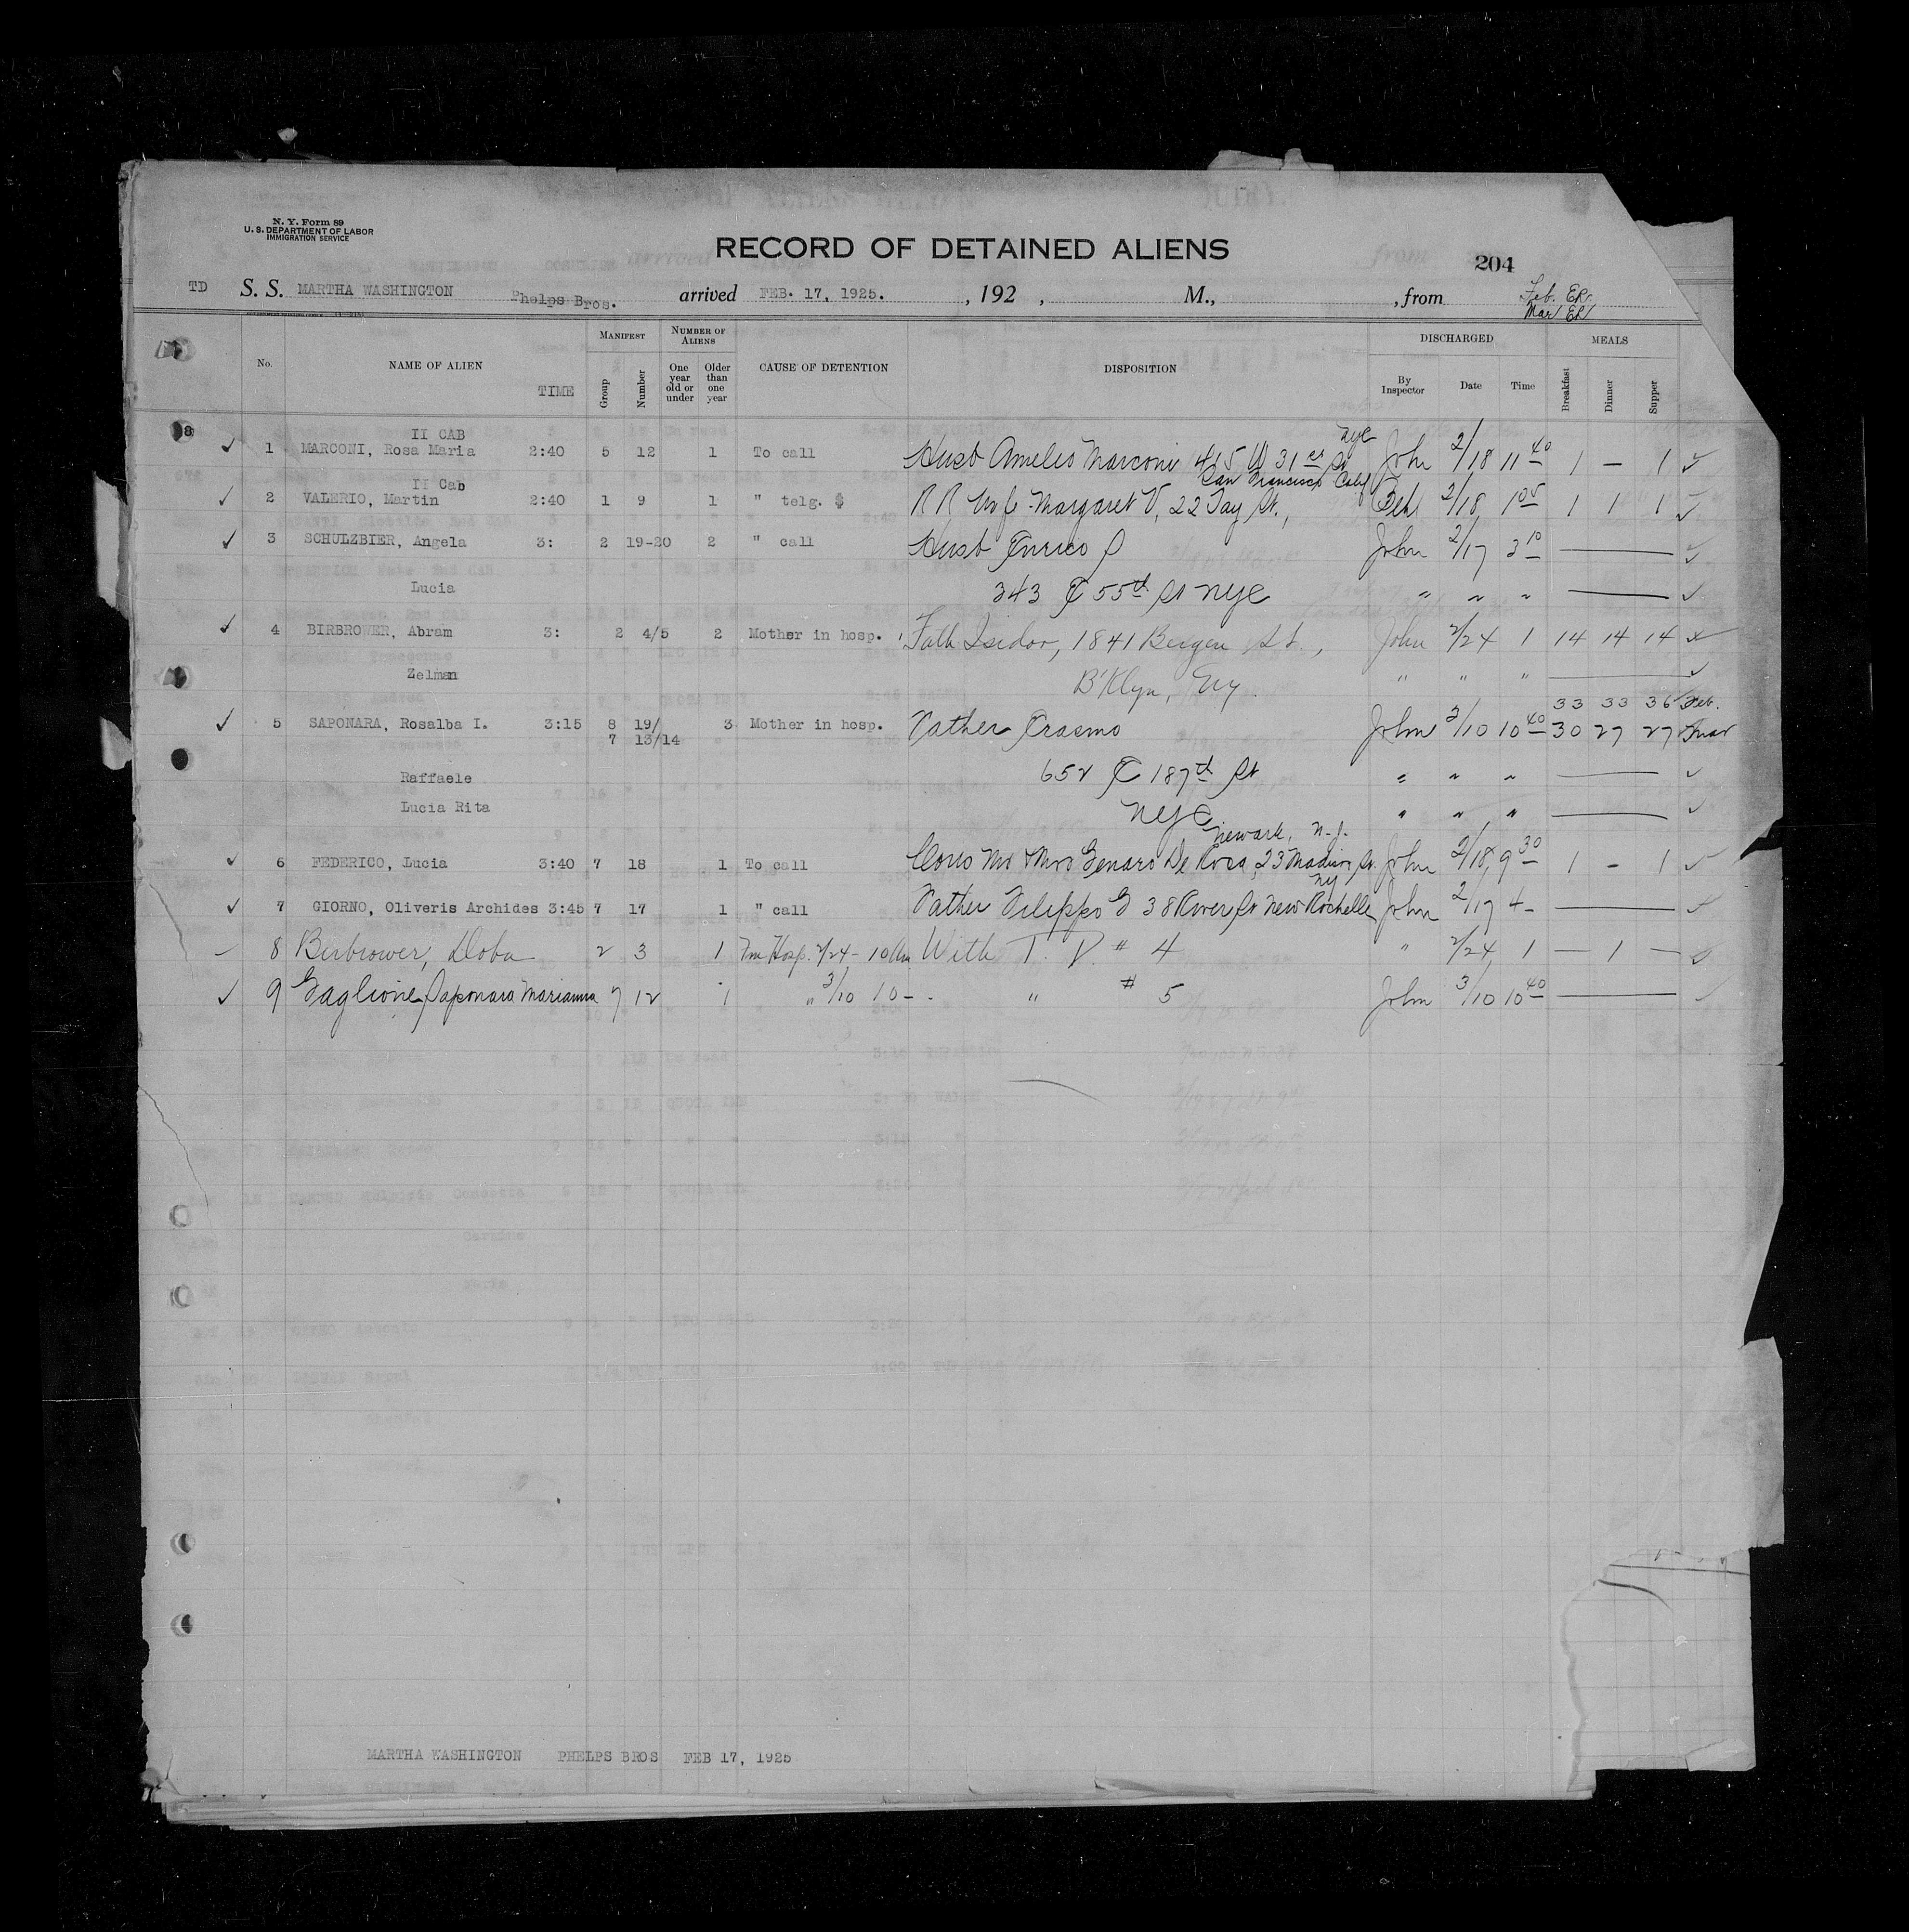 N. Y. Form 89
U. S. DEPARTMENT OF LABOR
IMMIGRATION SERVICE
RECORD OF DETAINED ALIENS
204
TD S. S. MARTHA WASHINGTON Phelps Bros. arrived FEB. 17, 1925. , 192 , M., , from Feb. ER.
Mar ER
No. NAME OF ALIEN TIME MANIFEST Group Number NUMBER OF ALIENS One year old or under Older than one year CAUSE OF DETENTION DISPOSITION DISCHARGED By Inspector Date Time MEALS Breakfast Dinner Supper
II CAB nyc
✓ 1 MARCONI, Rosa Maria 2:40 5 12 1 To call Husb Amelio Marconi 415 W 31st St John 2/18 11 40 1 — 1 ✓
II Cab San Francisco Calif
✓ 2 VALERIO, Martin 2:40 1 9 1 " telg. $ R R Wife Margaret V, 22 Tay St., 2/18 1 05 1 1 1 ✓
✓ 3 SCHULZBIER, Angela 3: 2 19-20 2 " call Husb Enrico S John 2/17 3 10 — ✓
Lucia 343 E 55th St nyc " " " — ✓
✓ 4 BIRBROWER, Abram 3: 2 4/5 2 Mother in hosp. Fath Isidor, 1841 Bergen St., John 2/24 1 14 14 14 ✓
Zelman B'Klyn, Ny. " " " — ✓
33 33 36 Feb.
✓ 5 SAPONARA, Rosalba I. 3:15 8 19/ 3 Mother in hosp. Father Erasmo John 3/10 10 40 30 27 27 Mar
7 13/14
Raffaele 652 E 187th St " " " — ✓
Lucia Rita nyc " " " — ✓
Newark, N.J.
✓ 6 FEDERICO, Lucia 3:40 7 18 1 To call Cous Mr & Mrs Genaro De Rosa, 23 Madison St. John 2/18 9 30 1 — 1 ✓
ny
✓ 7 GIORNO, Oliveris Archides 3:45 7 17 1 " call Father Filippo G 38 River St New Rochelle John 2/17 4 - — ✓
- 8 Birbrower, Doba 2 3 1 Fm Hosp. 2/24 - 10 Am With T. D. # 4 " 2/24 1 — 1 — ✓
✓ 9 Gaglione, Saponara Marianna 7 12 1 " 3/10 10 - - " # 5 John 3/10 10 40 — ✓
MARTHA WASHINGTON PHELPS BROS FEB 17, 1925